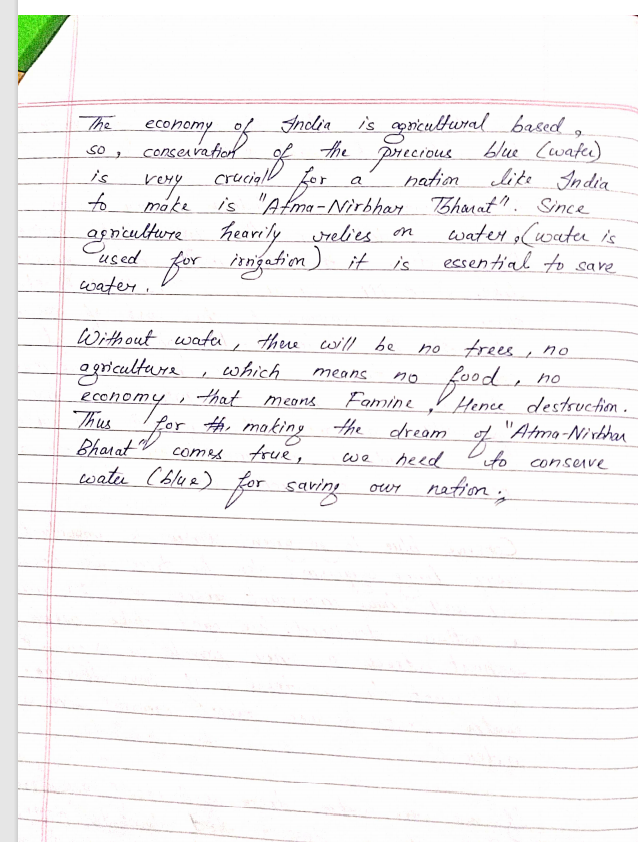 The economy of India is agricultural based,
so, conservation of the precious blue (water)
is very crucial for a nation like India
to make is "Atma-Nirbhar Bharat". Since
agriculture heavily relies on water, (water is
used for irrigation) it is essential to save
water.
Without water, there will be no trees, no
agriculture, which means no food, no
economy, that means Famine, Hence destruction.
Thus for th, making the dream of "Atma-Nirbhar
Bharat" comes true, we need to conserve
water (blue) for saving our nation.